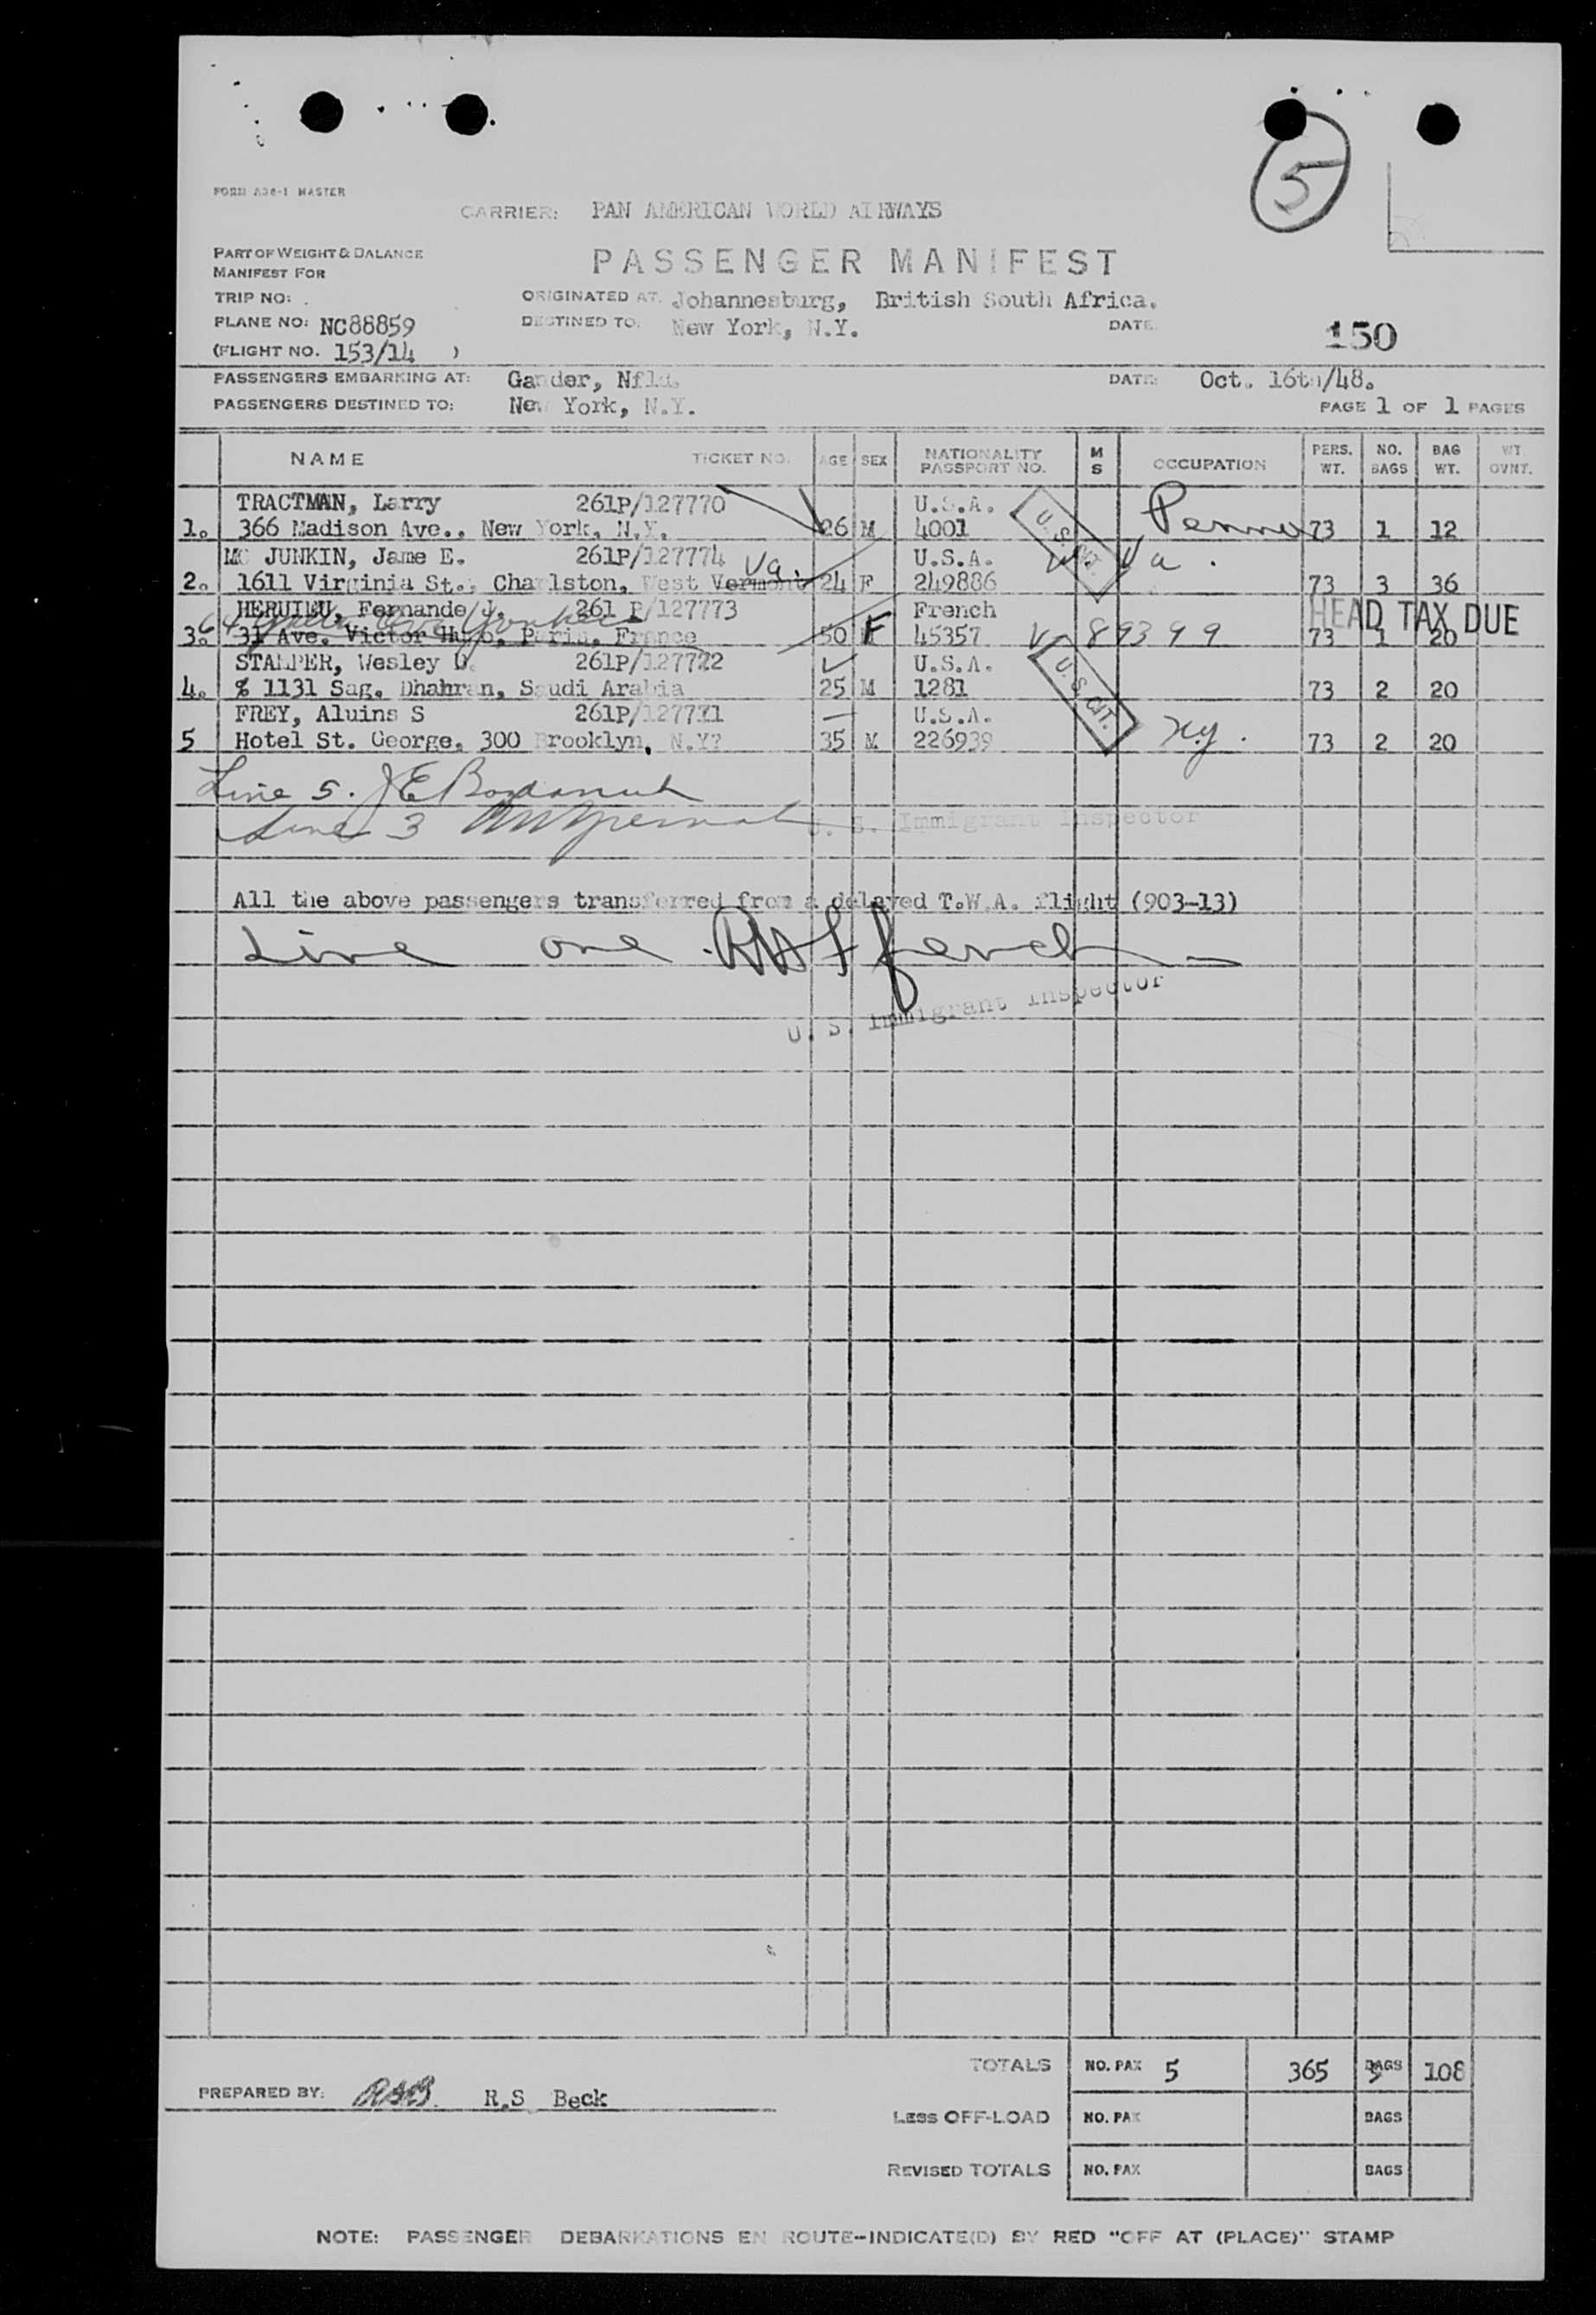 5
FORM A36-1 MASTER
CARRIER: PAN AMERICAN WORLD AIRWAYS
PART OF WEIGHT & BALANCE
MANIFEST FOR
PASSENGER MANIFEST
TRIP NO:
ORIGINATED AT. Johannesburg, British South Africa.
PLANE NO: NC88859
DESTINED TO: New York, N.Y.
DATE:
150
(FLIGHT NO. 153/14 )
PASSENGERS EMBARKING AT: Gander, Nfld. DATE: Oct. 16th/48.
PASSENGERS DESTINED TO: New York, N.Y. PAGE 1 OF 1 PAGES
NAME TICKET NO. AGE SEX NATIONALITY PASSPORT NO. M S OCCUPATION PERS. WT. NO. BAGS BAG WT. WT. OVNT.
TRACTMAN, Larry 261P/127770 U.S.A.
1. 366 Madison Ave., New York, N.Y. 26 M 4001 U.S. CIT. Penna 73 1 12
MC JUNKIN, Jame E. 261P/127774 Va. U.S.A. W. Va.
2. 1611 Virginia St., Charlston, West Vermont 24 F 249886 73 3 36
HERUIEU, Fernande J. 261 P/127773 French HEAD TAX DUE
3. 31 Ave. Victor Hugo, Paris, France 30 F 45357 V-89399 73 1 20
STAMPER, Wesley D. 261P/127772 U.S.A.
4. % 1131 Sag. Dhahran, Saudi Arabia 25 M 1281 U.S. CIT. 73 2 20
FREY, Aluins S 261P/127771 U.S.A.
5 Hotel St. George, 300 Brooklyn, N.Y? 35 M 226939 N.Y. 73 2 20
Line 5. J E
Line 3
U. S. Immigrant Inspector
All the above passengers transferred from a delayed T.W.A. flight (903-13)
Line one
U. S. Immigrant Inspector
TOTALS NO. PAX 5 365 BAGS 108
PREPARED BY: RSB. R.S Beck
Less OFF-LOAD NO. PAX BAGS
REVISED TOTALS NO. PAX BAGS
NOTE: PASSENGER DEBARKATIONS EN ROUTE--INDICATE(D) BY RED "OFF AT (PLACE)" STAMP